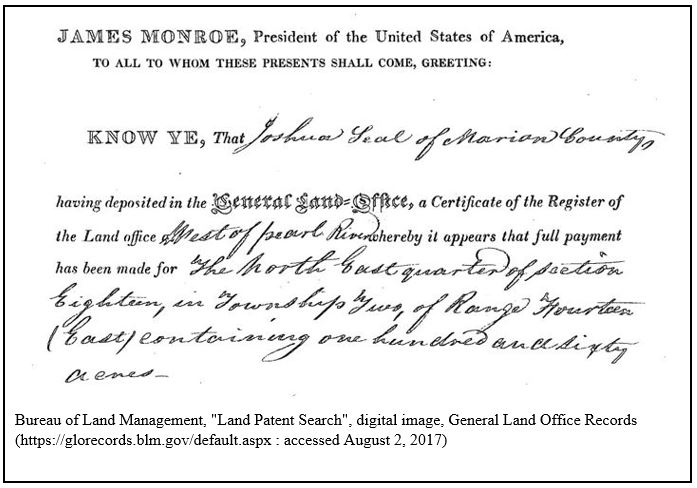 JAMES MONROE, President of the United States of America,
TO ALL TO WHOM THESE PRESENTS SHALL COME, GREETING:
KNOW YE, That Joshua Seal of Marion County,
having deposited in the General Land-Office, a Certificate of the Register of
the Land office West of pearl River whereby it appears that full payment
has been made for The North East quarter of section
Eighteen, in Township Two, of Range Fourteen
(East) containing one hundred and sixty
acres—
Bureau of Land Management, "Land Patent Search", digital image, General Land Office Records
(https://glorecords.blm.gov/default.aspx : accessed August 2, 2017)